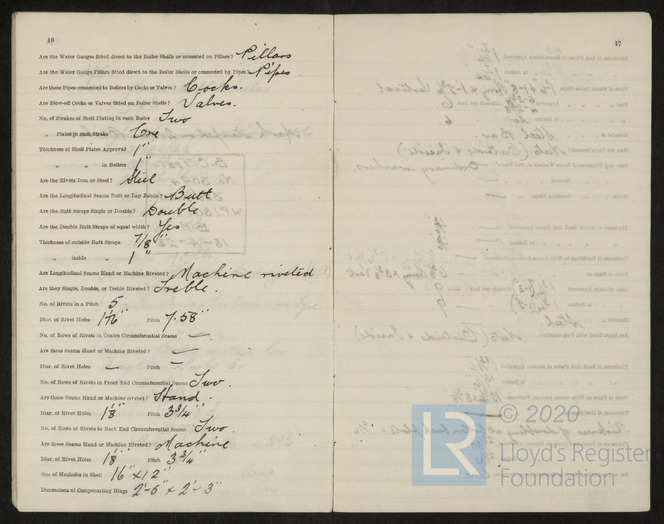 16
Are the Water Gauges fitted direct to the Boiler Shells or mounted on Pillars? Pillars
Are the Water Gauge Pillars fitted direct to the Boiler Shells or connected by Pipes? Pipes
Are these Pipes connected to Boilers by Cocks or Valves? Cocks.
Are Blow-off Cocks or Valves fitted on Boiler Shells? Valves.
No. of Strakes of Shell Plating in each Boiler Two
" Plates in each Strake One
Thickness of Shell Plates Approved 1"
" " in Boilers 1"
Are the Rivets Iron or Steel? Steel
Are the Longitudinal Seams Butt or Lap Joints? Butt
Are the Butt Straps Single or Double? Double
Are the Double Butt Straps of equal width? Yes
Thickness of outside Butt Straps 7/8"
" inside " 1"
Are Longitudinal Seams Hand or Machine Riveted? Machine riveted
Are they Single, Double, or Treble Riveted? Treble.
No. of Rivets in a Pitch 5
Diar. of Rivet Holes Pitch 7.58"
No. of Rows of Rivets in Centre Circumferential Seams —
Are these Seams Hand or Machine Riveted? —
Diar. of Rivet Holes — Pitch —
No. of Rows of Rivets in Front End Circumferential Seams Two.
Are these Seams Hand or Machine riveted? Hand.
Diar. of Rivet Holes 1 1/8" Pitch 3 3/4"
No. of Rows of Rivets in Back End Circumferential Seams Two.
Are these Seams Hand or Machine Riveted? Machine
Diar. of Rivet Holes 1 1/8" Pitch 3 3/4"
Size of Manholes in Shell 16" x 12"
Dimensions of Compensating Rings 2'-5" x 2'-3"
17
© 2020
LR
Lloyd's Register
Foundation